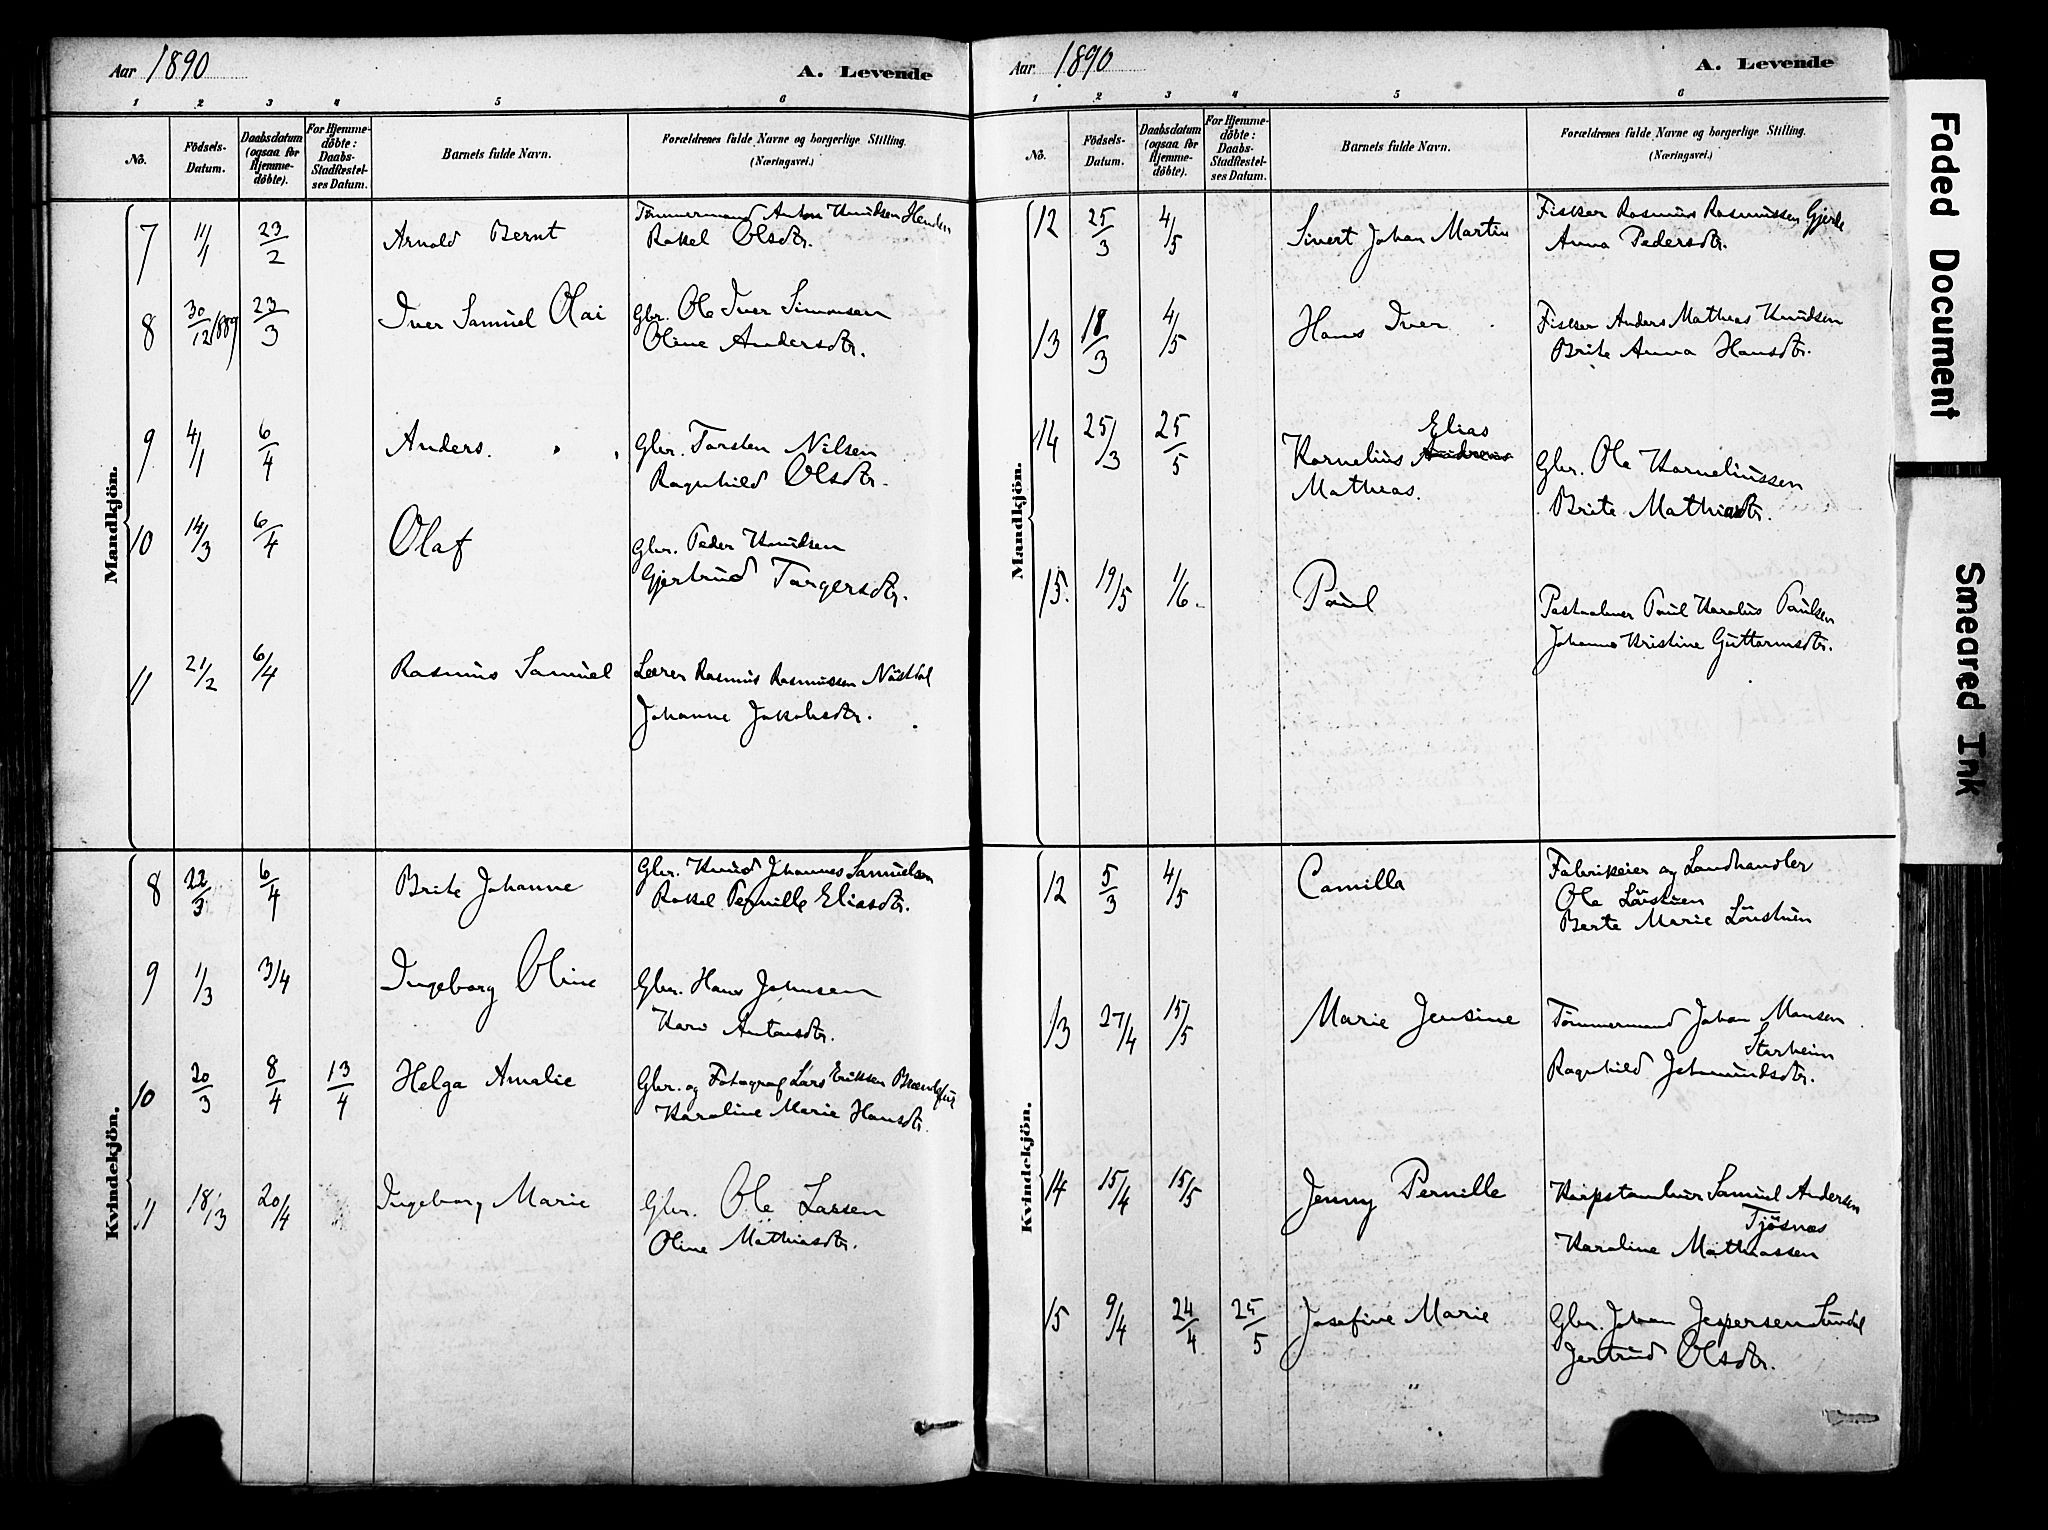 Aar 1890
A. Levende
1 2 3 4 5 6
No.
Födsels-Datum.
Daabsdatum (ogsaa for Hjemme-döbte).
For Hjemme-döbte: Daabs-Stadfæstel-ses Datum.
Barnets fulde Navn.
Forældrenes fulde Navne og borgerlige Stilling.
(Næringsvei.)
Mandkjön.
7 11/1 23/2 Arnold Bernt Tömmermand Anton Knudsen
Rakel Olsdtr.
8 30/12 1889 23/3 Iver Samuel Olai Gbr. Ole Iver Simonsen
Oline Andersdtr.
9 4/1 6/4 Anders. Gbr. Torsten Nilsen
Ragnhild Olsdtr.
10 14/3 6/4 Olaf Gbr. Peder Knudsen
Gjertrud Torgersdtr.
11 21/2 6/4 Rasmus Samuel Lærer Rasmus Rasmussen
Johanne Jakobsdtr.
Kvindekjön.
8 22/3 6/4 Brite Johanne Gbr. Knud Johannes Samuelsen
Rakel Pernille Eliasdtr.
9 1/3 3/4 Ingeborg Oline Gbr. Hans Johnsen
Kari Antonsdtr.
10 20/3 8/4 13/4 Helga Amalie Gbr. og Fotograf Lars Eriksen
Karoline Marie Hansdtr.
11 18/3 20/4 Ingeborg Marie Gbr. Ole Larsen
Oline Mathiasdtr.
Aar 1890
A. Levende
1 2 3 4 5 6
No.
Födsels-Datum.
Daabsdatum (ogsaa for Hjemme-döbte).
For Hjemme-döbte: Daabs-Stadfæstel-ses Datum.
Barnets fulde Navn.
Forældrenes fulde Navne og borgerlige Stilling.
(Næringsvei.)
Mandkjön.
12 25/3 4/5 Sivert Johan Martin Fisker Rasmus Rasmussen Gjerde
Anna Pedersdtr.
13 18/3 4/5 Hans Iver Fisker Anders Mathias Knudsen
Brite Anna Hansdtr.
Elias
14 25/3 25/5 Kornelius Andreas Gbr. Ole Korneliussen
Mathias. Brite Mathiasdtr.
15. 19/5 1/6 Paul Postaabner Paul Karolus Paulsen
Johanne Kristine Guttormsdtr.
Kvindekjön.
12 5/3 4/5 Camilla Fabrikeier og Landhandler
Ole
Berte Marie
13 27/4 15/5 Marie Jensine Tömmermand Johan Monsen
Starheim
Ragnhild Jetmundsdtr.
14 15/4 15/5 Jenny Pernille Samuel Andersen
Tjösnes
Karoline Mathiassen
15 9/4 24/4 25/5 Josefine Marie Gbr. Johan Jespersen
Jertrud Olsdtr.
Faded Document
Smeared Ink